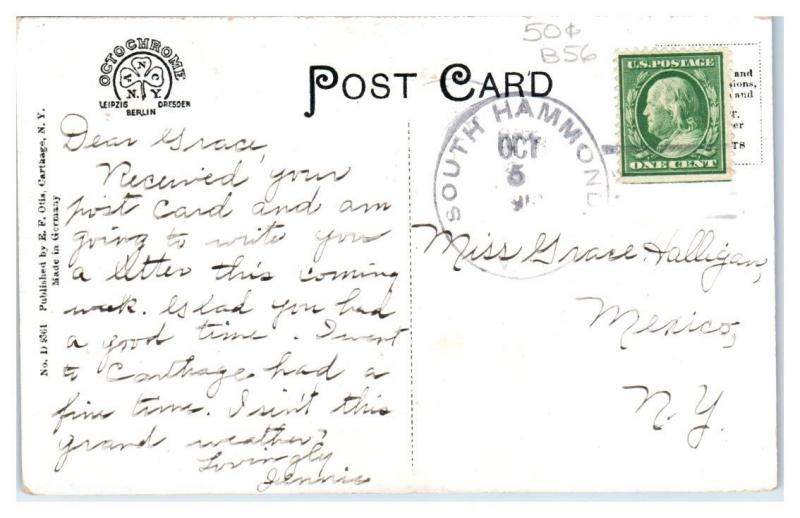 OCTOCHROME
A N C
N. Y.
LEIPZIG DRESDEN
BERLIN
POST CARD
50¢
B56
U.S. POSTAGE
ONE CENT
and
sions,
and
T.
er
TS
SOUTH HAMMOND
OCT
5
No. D 8361 Published by E. F. Otis, Carthage, N. Y.
Made in Germany
Dear Grace,
Received your
post card and am
going to write you
a letter this coming
week. Glad you had
a good time. I went
to Carthage had a
fine time. Isint this
grand weather,
Lovingly
Jennie
Miss Grace Halligan,
Mexico,
N.Y.